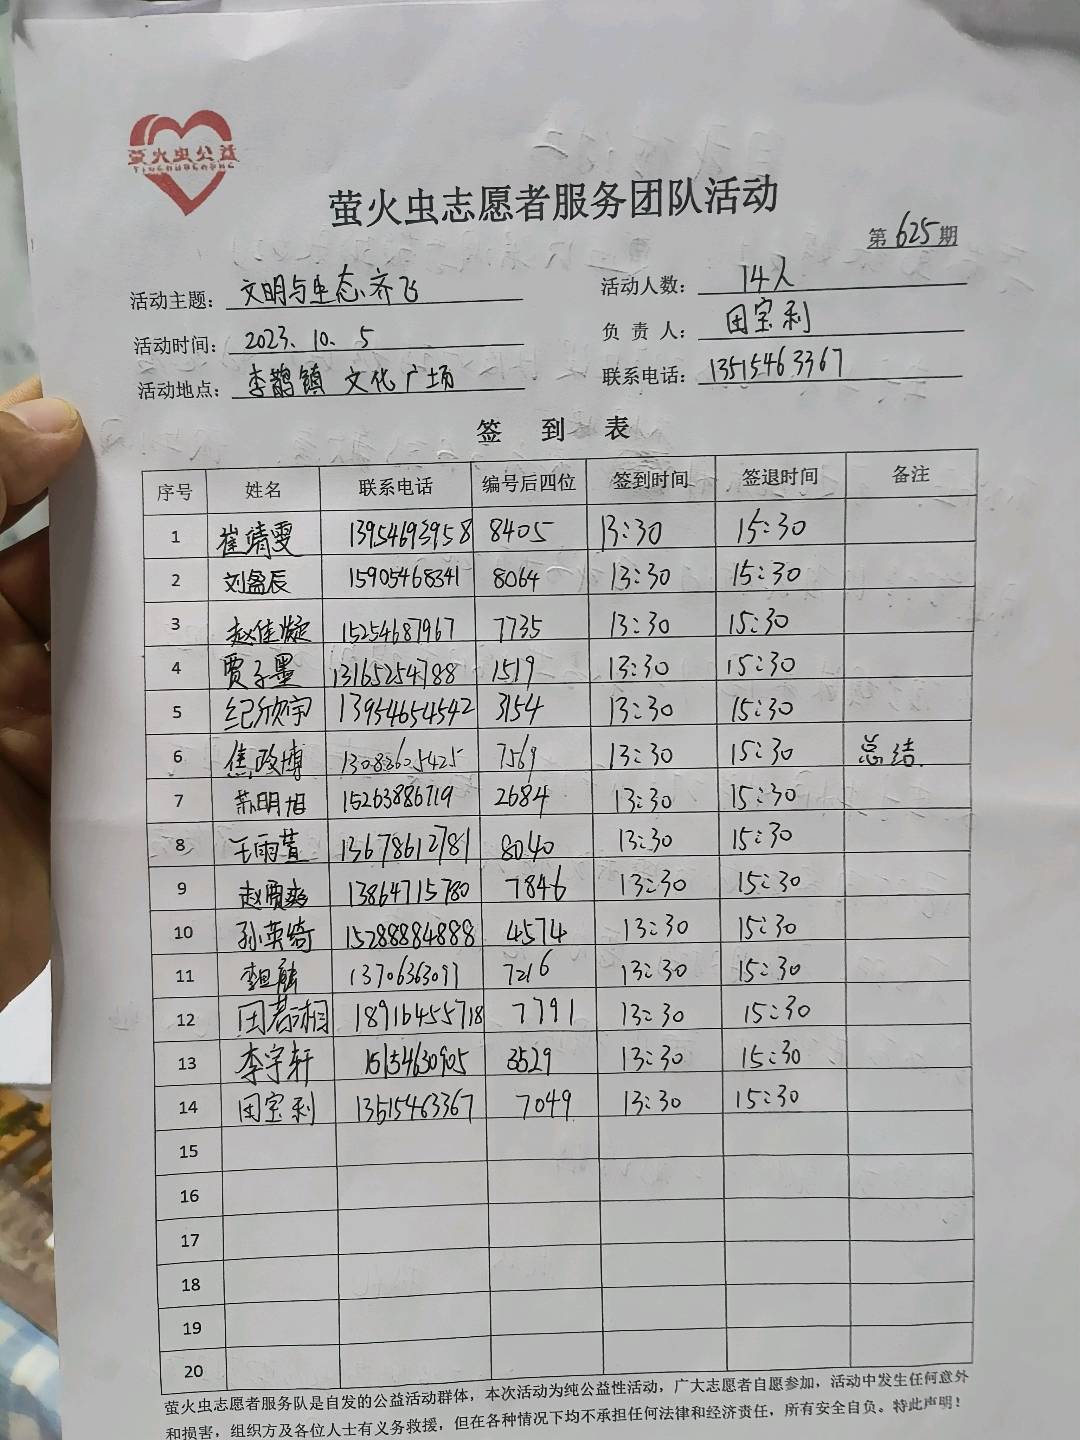 萤火虫公益
萤火虫志愿者服务团队活动
第625期
活动主题：文明与生态齐飞 活动人数：14人
活动时间：2023.10.5 负责人：田宝利
活动地点：李鹊镇 文化广场 联系电话：13515463367
签到表
序号 姓名 联系电话 编号后四位 签到时间 签退时间 备注
1 崔靖雯 13954693958 8405 13:30 15:30
2 刘盈辰 15905468341 8064 13:30 15:30
3 赵佳凝 15254687967 7735 13:30 15:30
4 贾子墨 13165254788 1519 13:30 15:30
5 纪欣宇 13954654542 3154 13:30 15:30
6 焦政博 7569 13:30 15:30 总结
7 苏明旭 15263886719 2684 13:30 15:30
8 王雨萱 13678612781 8040 13:30 15:30
9 赵贾爽 13864715780 7846 13:30 15:30
10 孙英绮 15288884888 4574 13:30 15:30
11 7216 13:30 15:30
12 田若湘 18916455718 7791 13:30 15:30
13 李宇轩 15154630905 3529 13:30 15:30
14 田宝利 13515463367 7049 13:30 15:30
15
16
17
18
19
20
萤火虫志愿者服务队是自发的公益活动群体，本次活动为纯公益性活动，广大志愿者自愿参加，活动中发生任何意外
和损害，组织方及各位人士有义务救援，但在各种情况下均不承担任何法律和经济责任，所有安全自负。特此声明！